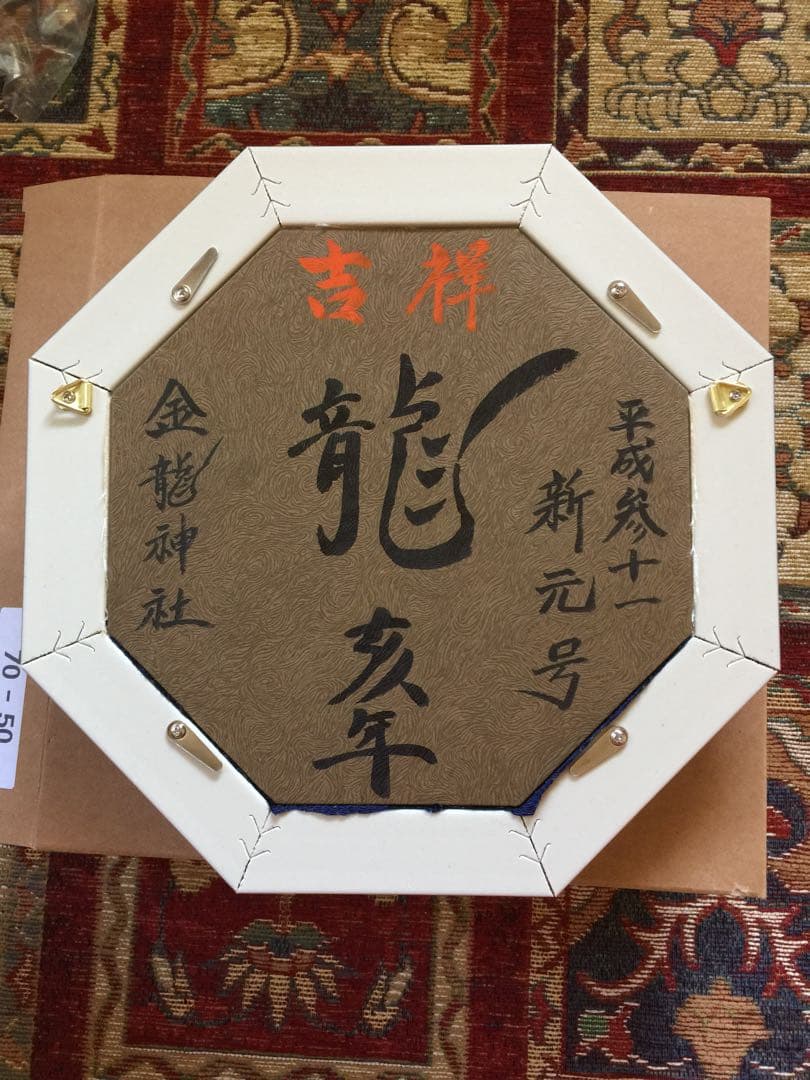 吉祥
平成参十一
新元号
龍
亥年
金龍神社
70-50